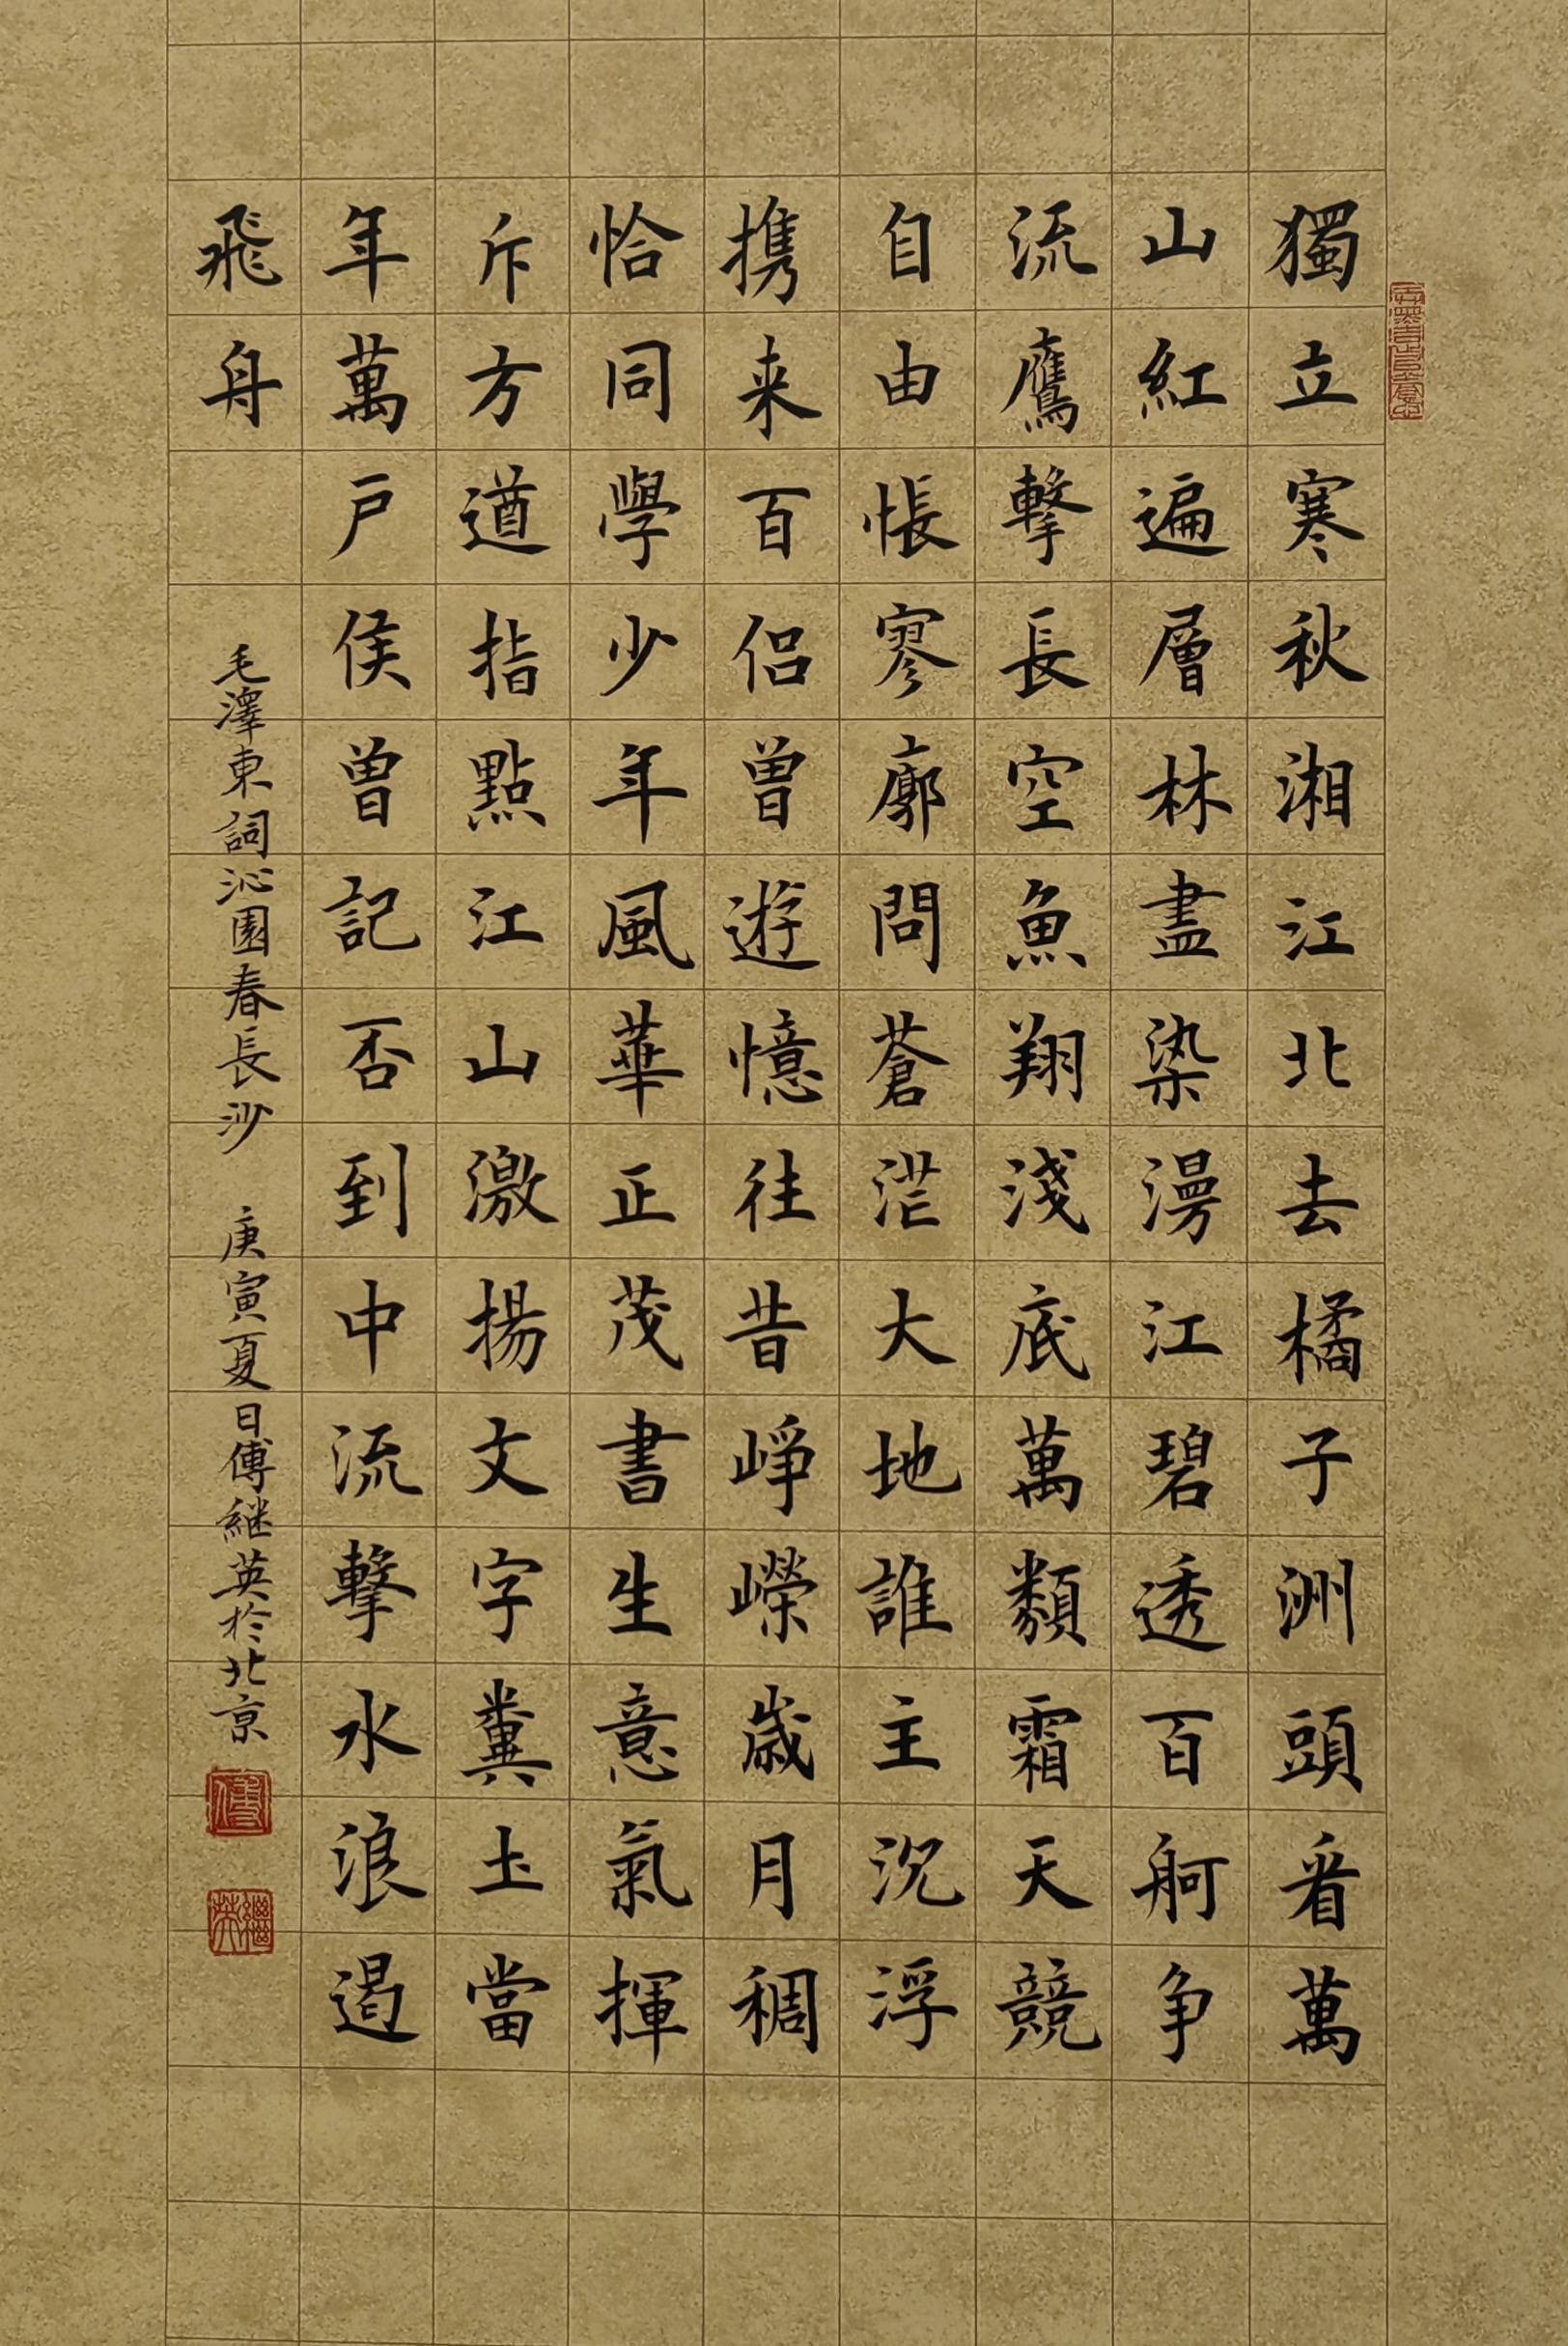 獨立寒秋湘江北去橘子洲頭看萬
山紅遍層林盡染漫江碧透百舸争
流鷹擊長空魚翔淺底萬類霜天競
自由悵寥廓問蒼茫大地誰主沉浮
携来百侣曾遊憶往昔崢嶸歲月稠
恰同學少年風華正茂書生意氣揮
斥方遒指點江山激揚文字糞土當
年萬户侯曾記否到中流擊水浪遏
飛舟
毛澤東詞沁園春長沙 庚寅夏日傅继英於北京
傅
繼英